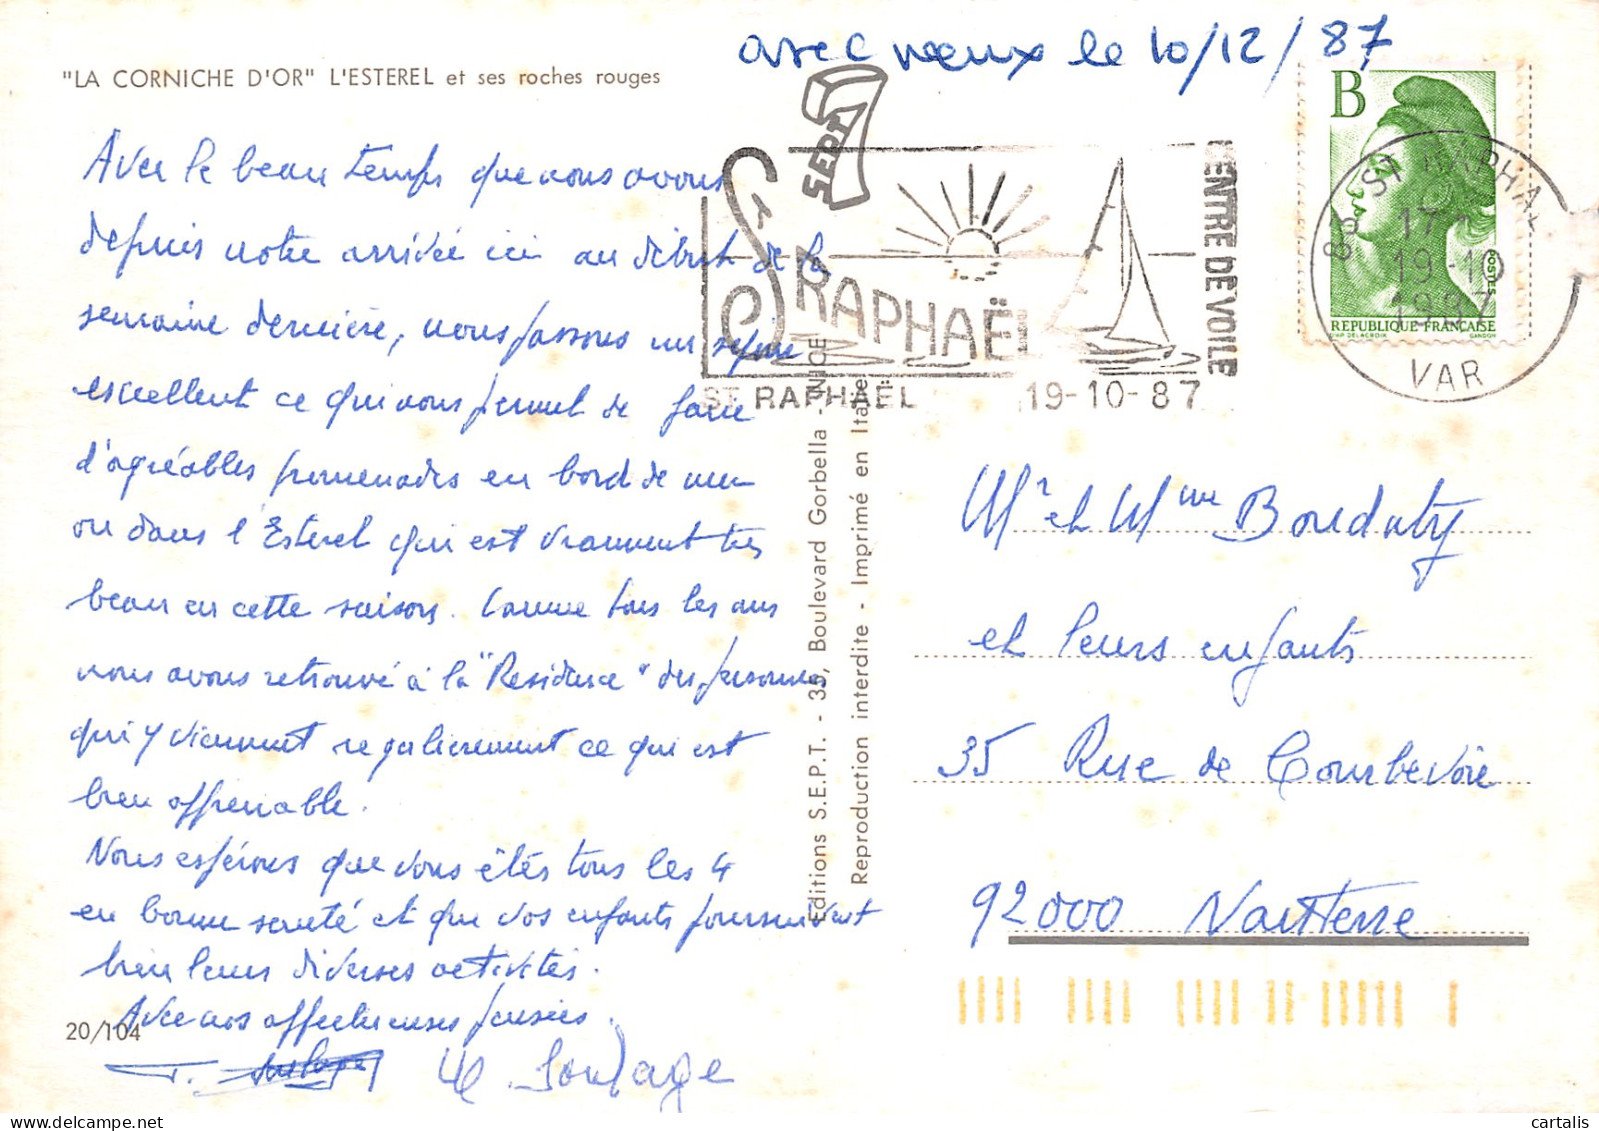 avec vœux le 10/12/87
"LA CORNICHE D'OR" L'ESTEREL et ses roches rouges
Avec le beau temps que nous avons
depuis notre arrivée ici au début de la
semaine dernière, nous passons un séjour
excellent ce qui nous permet de faire
d'agréables promenades en bord de mer
ou dans l'Esterel qui est vraiment très
beau en cette saison. Comme tous les ans
nous avons retrouvé à la "Residence" des personnes
qui y viennent regulierement ce qui est
bien appreciable.
Nous espérons que vous êtes tous les 4
en bonne santé et que vos enfants poursuivent
bien leurs diverses activités.
Avec nos affectueuses pensées.
20/104
Soulage
Editions S.E.P.T. - 35, Boulevard Gorbella - NICE
Reproduction interdite - Imprimé en Italie
SEPT
St RAPHAËL
CENTRE DE VOILE
ST RAPHAËL 19-10-87
B
POSTES
REPUBLIQUE FRANÇAISE
D'AP. DELACROIX GANDON
83 ST RAPHAEL
17 H
19-10
1987
VAR
Mr et Mme Boudaty
et leurs enfants
35 Rue de Courbevoie
92000 Nanterre
cartalis